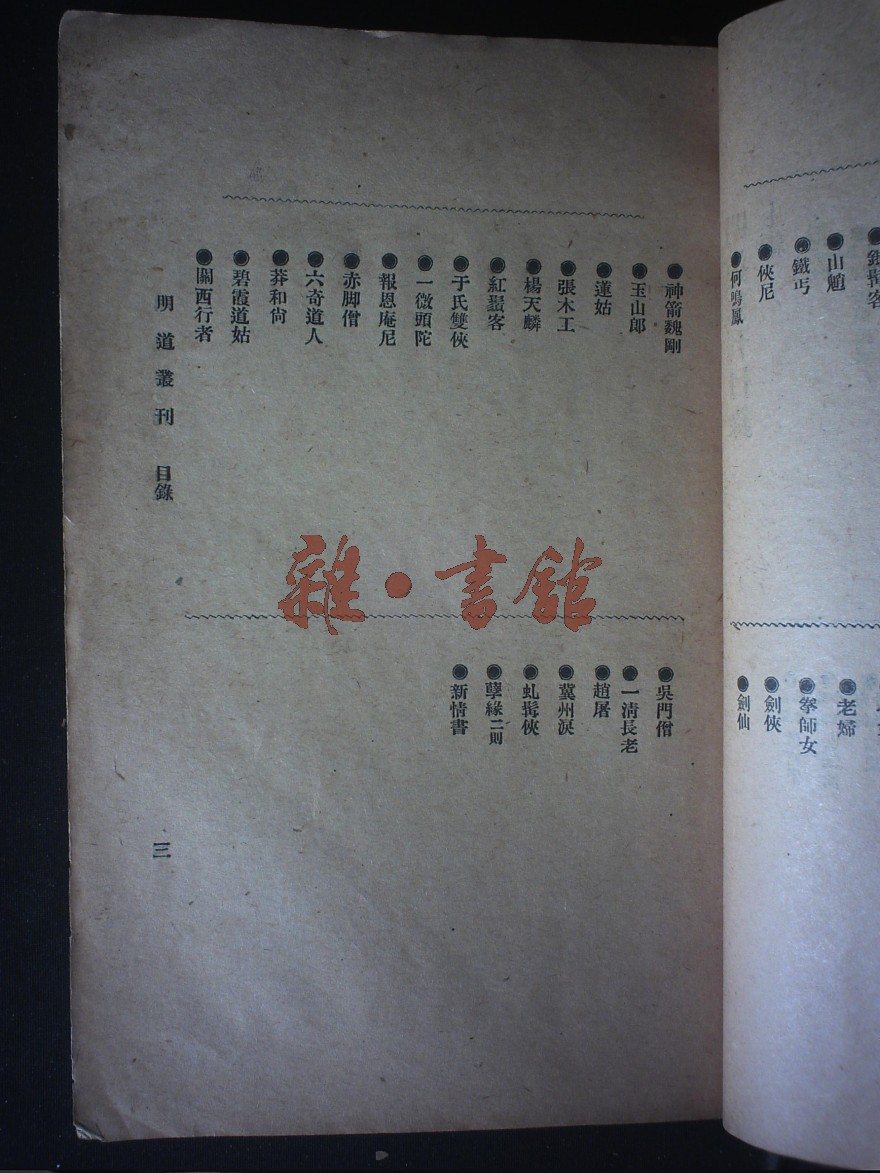 山魈
鐵丐
俠尼
何鳴鳳
老婦
拳師女
劍俠
劍仙
神箭魏剛
玉山郎
蓮姑
張木工
楊天麟
紅鬚客
于氏雙俠
一微頭陀
報恩庵尼
赤脚僧
六奇道人
莽和尙
碧霞道姑
關西行者
吳門僧
一淸長老
趙屠
冀州淚
虬髯俠
孽緣二則
新情書
明道叢刊 目錄
三
雜·書館